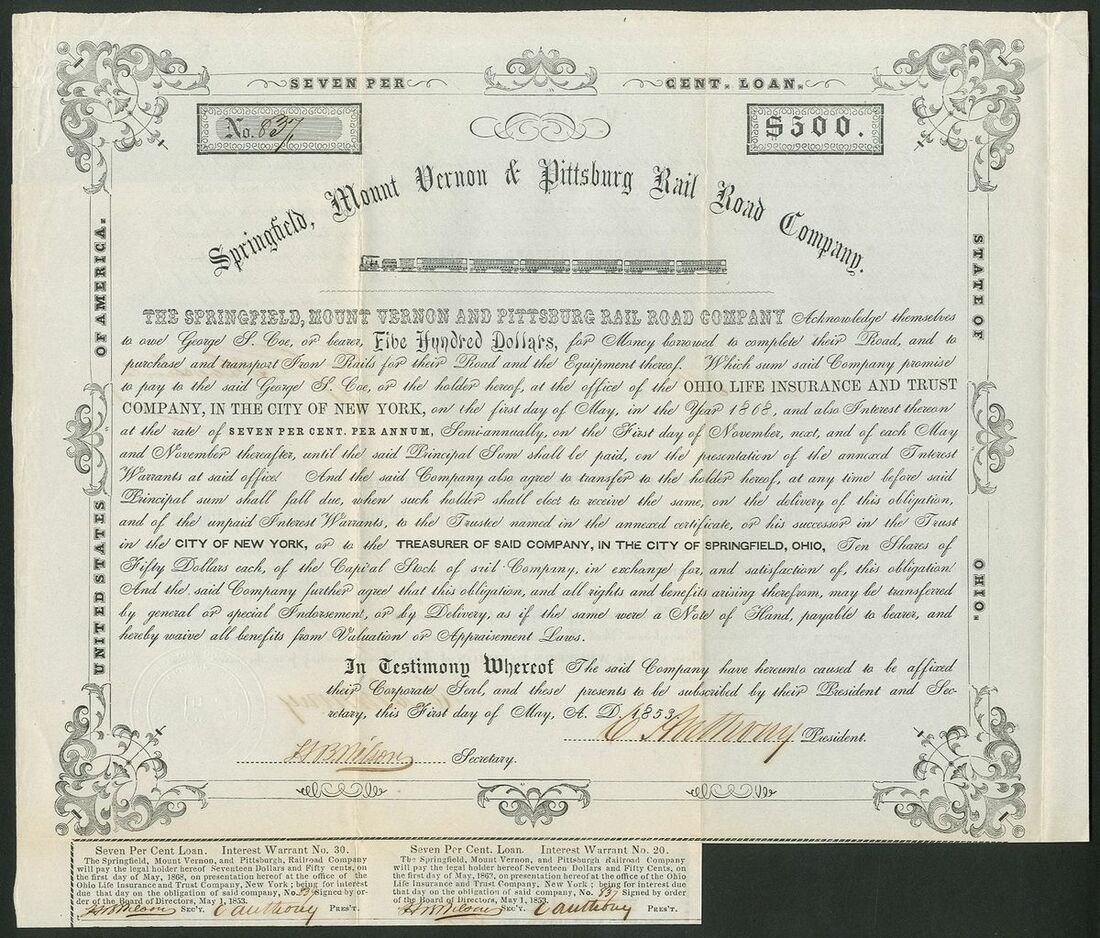 SEVEN PER CENT. LOAN.
No. 837
$500.
Springfield, Mount Vernon & Pittsburg Rail Road Company.
OF AMERICA.
UNITED STATES
STATE OF
OHIO.
THE SPRINGFIELD, MOUNT VERNON AND PITTSBURG RAIL ROAD COMPANY Acknowledge themselves
to owe George S. Coe, or bearer, Five Hundred Dollars, for Money borrowed to complete their Road, and to
purchase and transport Iron Rails for their Road and the Equipment thereof. Which sum said Company promise
to pay to the said George S. Coe, or the holder hereof, at the office of the OHIO LIFE INSURANCE AND TRUST
COMPANY, IN THE CITY OF NEW YORK, on the first day of May, in the Year 1868, and also Interest thereon
at the rate of SEVEN PER CENT. PER ANNUM, Semi-annually, on the First day of November, next, and of each May
and November thereafter, until the said Principal Sum shall be paid, on the presentation of the annexed Interest
Warrants at said office. And the said Company also agree to transfer to the holder hereof, at any time before said
Principal sum shall fall due, when such holder shall elect to receive the same, on the delivery of this obligation,
and of the unpaid Interest Warrants, to the Trustee named in the annexed certificate, or his successor in the Trust
in the CITY OF NEW YORK, or to the TREASURER OF SAID COMPANY, IN THE CITY OF SPRINGFIELD, OHIO, Ten Shares of
Fifty Dollars each, of the Capital Stock of said Company, in exchange for, and satisfaction of, this obligation.
And the said Company further agree that this obligation, and all rights and benefits arising therefrom, may be transferred
by general or special Indorsement, or by Delivery, as if the same were a Note of Hand, payable to bearer, and
hereby waive all benefits from Valuation or Appraisement Laws.
In Testimony Whereof The said Company have hereunto caused to be affixed
their Corporate Seal, and these presents to be subscribed by their President and Sec-
retary, this First day of May, A. D. 1853.
C Anthony President.
H S B Wilson Secretary.
Seven Per Cent Loan. Interest Warrant No. 30.
The Springfield, Mount Vernon, and Pittsburgh, Railroad Company
will pay the legal holder hereof Seventeen Dollars and Fifty cents, on
the first day of May, 1868, on presentation hereof at the office of the
Ohio Life Insurance and Trust Company, New York; being for interest
due that day on the obligation of said company, No. 837 Signed by or-
der of the Board of Directors, May 1, 1853.
SEC'Y. C Anthony PRES'T.
Seven Per Cent. Loan. Interest Warrant No. 20.
The Springfield, Mount Vernon, and Pittsburgh Railroad Company
will pay the legal holder hereof Seventeen Dollars and Fifty Cents, on
the first day of May, 1867, on presentation hereof at the office of the Ohio
Life Insurance and Trust Company, New York; being for interest due
that day on the obligation of said company, No. 837 Signed by order
of the Board of Directors, May 1, 1853.
SEC'Y. C Anthony PRES'T.